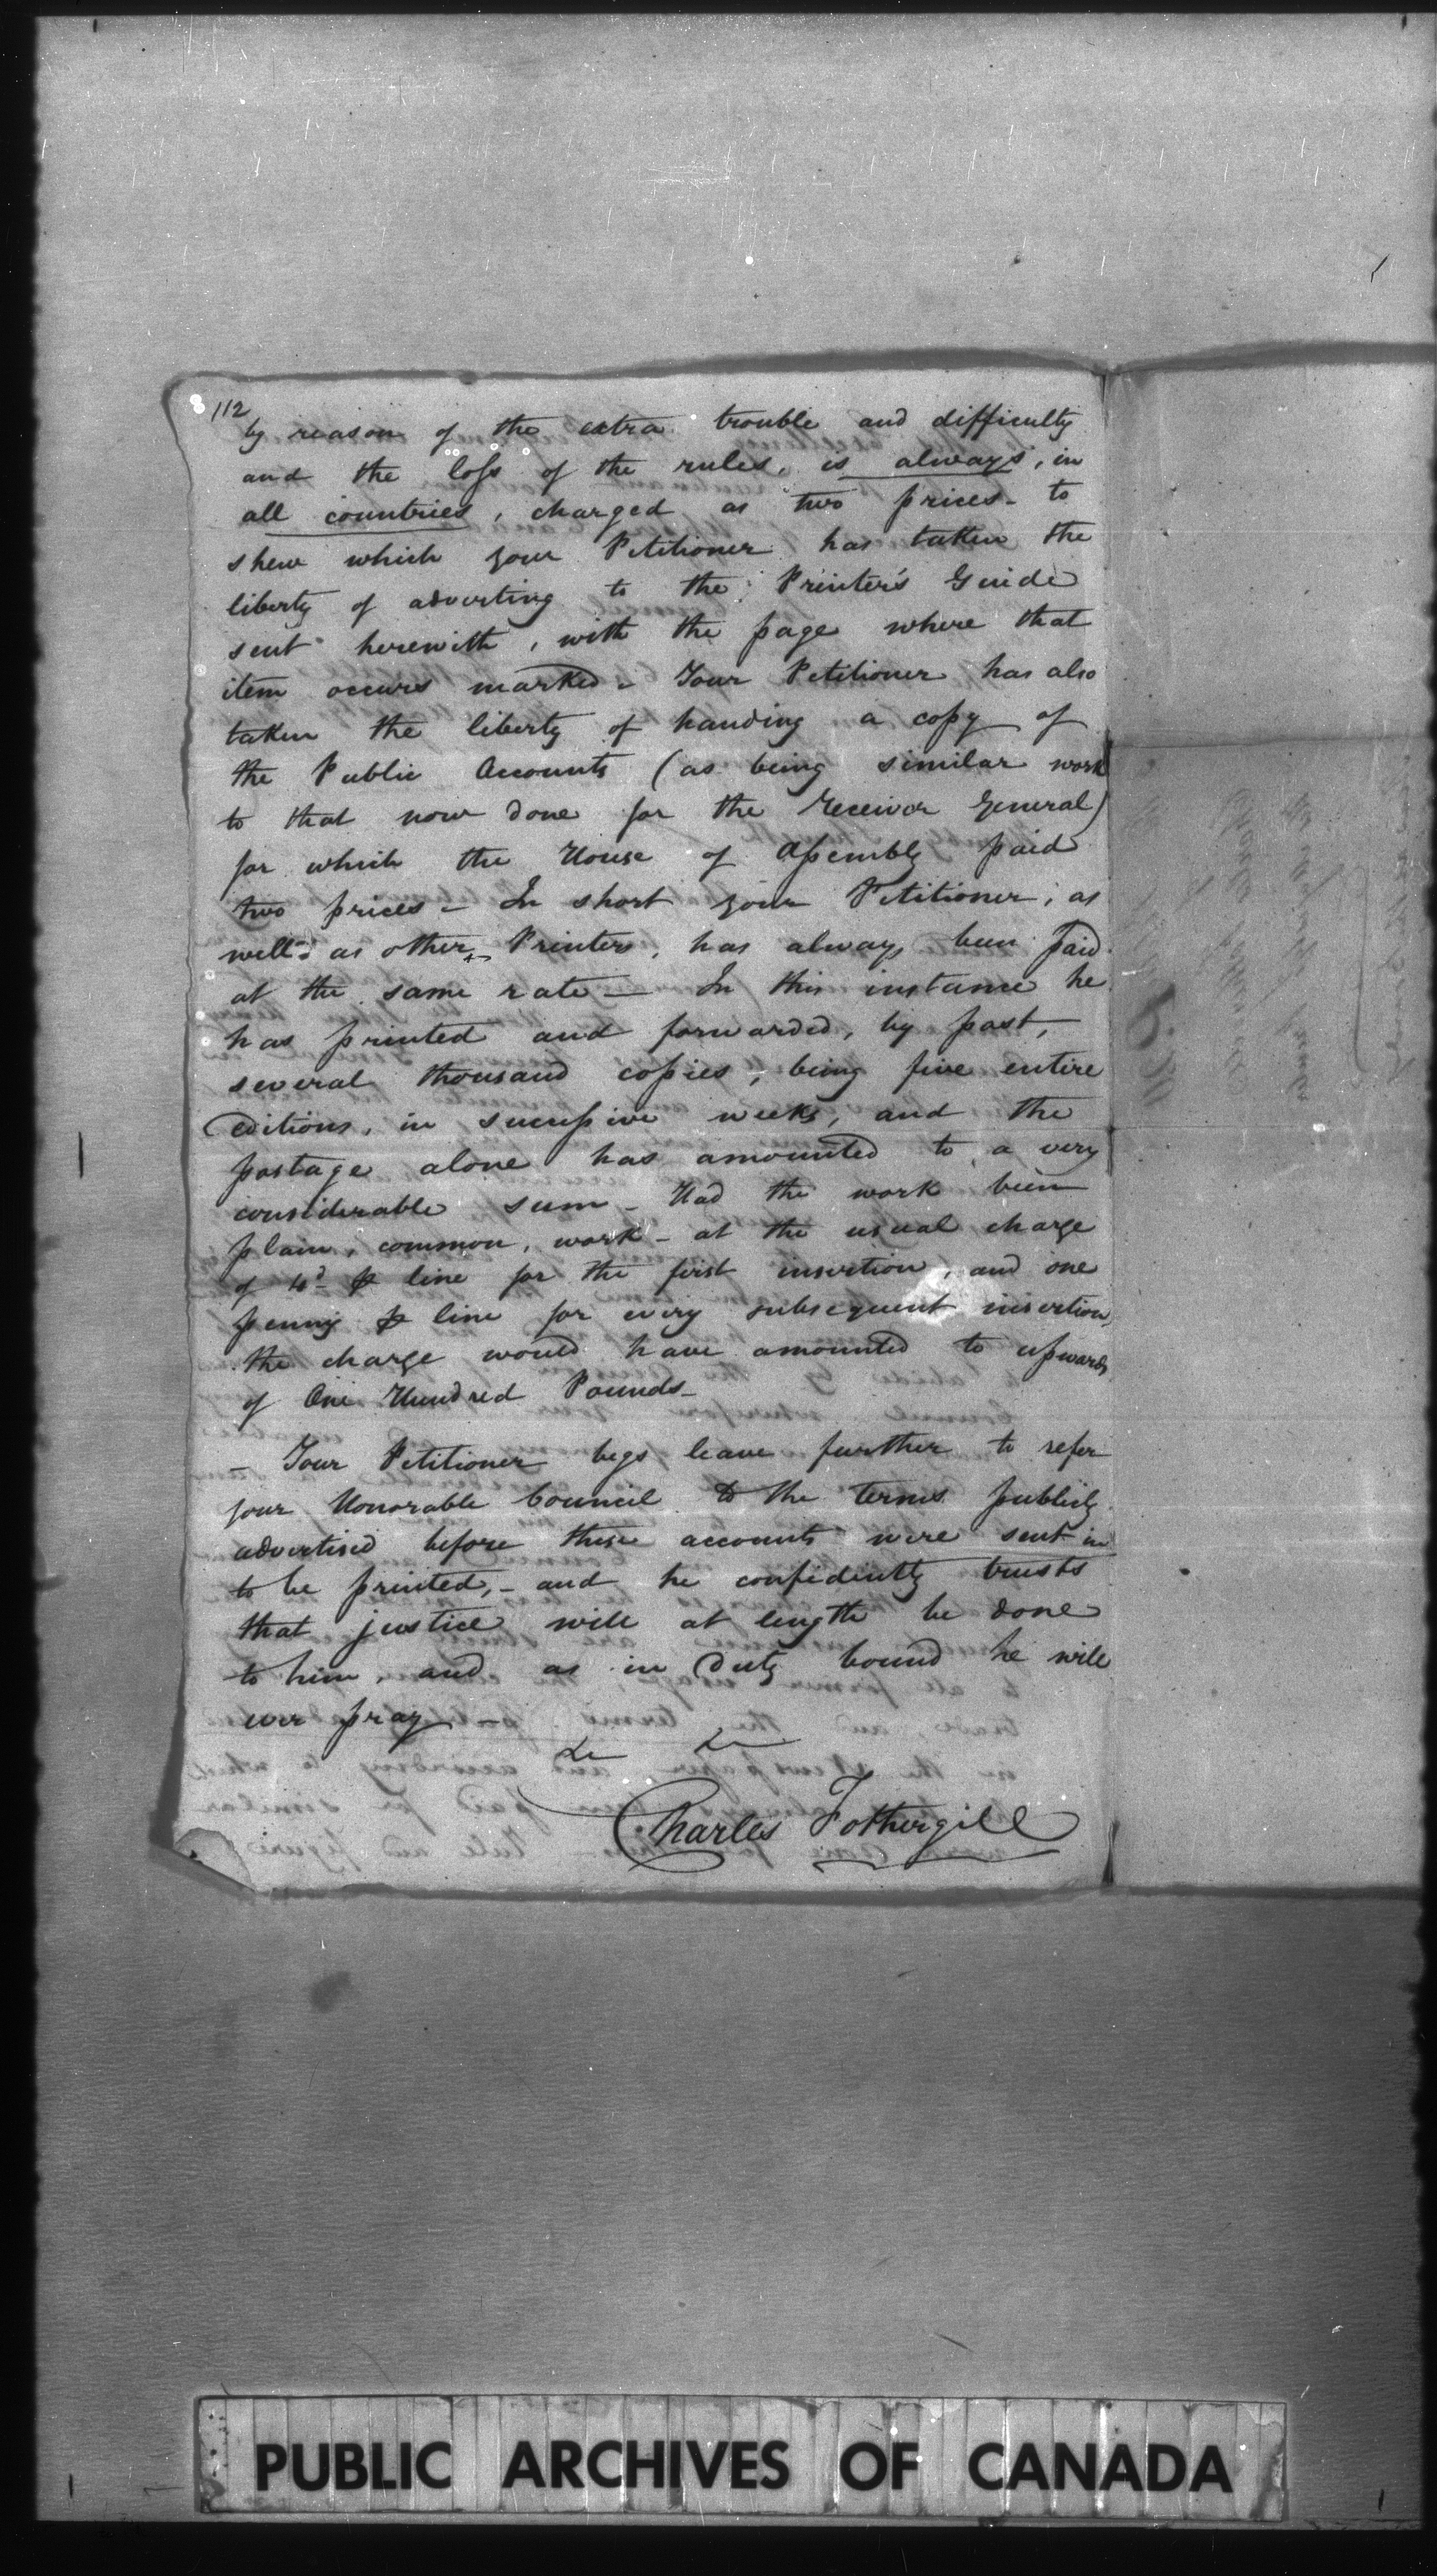 112
by reason of the extra trouble and difficulty
and the loſs of the rules, is always, in
all countries, charged as two prices - to
shew which your Petitioner has taken the
liberty of adverting to the Printer's Guide
sent herewith, with the page where that
item occurs marked - Your Petitioner has also
taken the liberty of handing a copy of
the Public Accounts (as being similar work
to that now done for the Receiver General)
for which the House of Aſsembly paid
two prices - In short your Petitioner, as
well as other Printers, has always been paid
at the same rate — In this instance he
has printed and forwarded, by post,
several thousand copies, being five entire
Editions, in succeſsive weeks, and the
postage alone has amounted to a very
considerable sum - Had the work been
plain, common, work - at the usual charge
of 4d ⅌ line for the first insertion, and one
penny ⅌ line for every subsequent insertion,
the charge would have amounted to upwards
of One Hundred Pounds -
- Your Petitioner begs leave further to refer
your Honorable Council to the terms publicly
advertised before these accounts were sent in
to be printed, - and he confidently trusts
that justice will at length be done
to him, and as in Duty bound he will
ever pray -
&c &c
Charles Fothergill
PUBLIC ARCHIVES OF CANADA